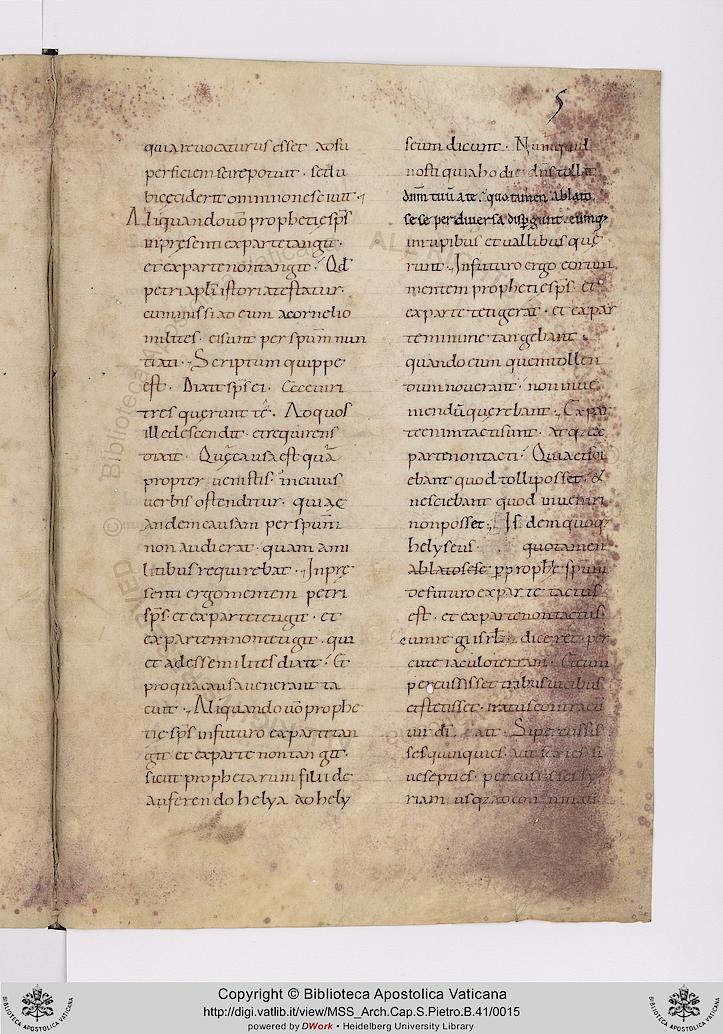 5
quia reuocaturus esset ad su
perficiem scire potuit · sed u
bi ceciderit omnino nesciuit ·
Aliquando uo prophetię sps
in pręsenti ex parte tangit ·
et ex parte non tangit · Qd
petri apli istoria testatur ·
cum missi ad eum a cornelio
milites · ei sunt per spum nun
tiati · Scriptum quippe
est · Dixit sps ei · Ecce uiri
tres querunt te · Ad quos
ille descendit · et requirens
dixit · Quę causa est qua
propter uenistis · in cuius
uerbis ostenditur · quia e
andem causam per spum
non audierat · quam a mi
litibus requirebat · In prę
senti ergo mentem petri
sps et ex parte tetigit · et
ex parte non tetigit · qui
et adesse milites dixit · Et
pro qua causa uenerant ta
cuit · Aliquando uo prophe
tię sps in futuro ex parte tan
git et ex parte non tangit ·
sicut prophetarum filii de
auferendo helya ad hely
seum dicunt · Numquid
nosti quia hodie dns tollat
dnm tuum a te · quo tamen ablato
sese per diuersa dispgunt · eumq;
in rupibus et uallibus quę
runt · In futuro ergo eorum
mentem prophetię sps et
ex parte tetigerat · et ex par
te minime tangebant
quando eum quem tollen
dum nouerant · non inue
niendu querebant · Ex par
te enim tacti sunt · atq; ex
parte non tacti · Quia et sci
ebant quod tolli posset · &
nesciebant quod inueniri
non posset · Is dem quoq;
helyseus quo tamen
ablato sese p prophe spum
de futuro ex parte tactus
est · et ex parte non tactus ·
cum regi isrl diceret · per
cute iaculo terram · Et cum
percussisset tribus uicibus
et stetisset · iratus contra eu
uir di · ait · Si percussis
ses quinquies · aut sexies si
ue septies · percussisses sy
riam usq; ad con
Copyright © Biblioteca Apostolica Vaticana
http://digi.vatlib.it/view/MSS_Arch.Cap.S.Pietro.B.41/0015
powered by DWork • Heidelberg University Library
BIBLIOTECA APOSTOLICA VATICANA
BIBLIOTECA APOSTOLICA VATICANA